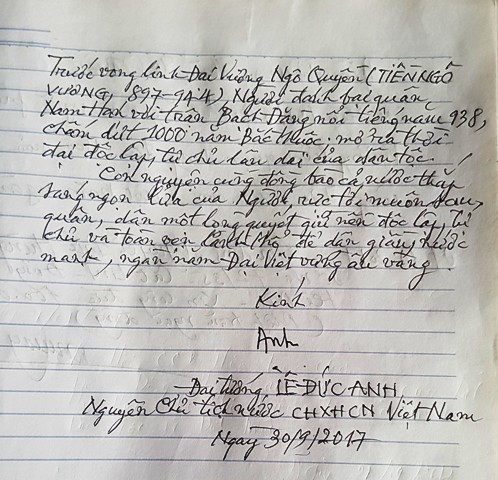 Trước vong linh Đại Vương Ngô Quyền (TIỀN NGÔ
VƯƠNG, 897-944) Người đánh bại quân
Nam Hán với trận Bạch Đằng nổi tiếng năm 938,
chấm dứt 1000 năm Bắc thuộc. mở ra thời
đại độc lập, tự chủ lâu dài của dân tộc.
Con nguyện cùng đồng bào cả nước thắp
sáng ngọn lửa của Người, rực tới muôn sau,
quân, dân một lòng quyết giữ nền độc lập, tự
chủ và toàn vẹn lãnh thổ để dân giàu, nước
mạnh, ngàn năm Đại Việt vững âu vàng.
Kính
Anh
Đại tướng LÊ ĐỨC ANH
Nguyên Chủ tịch nước CHXHCN Việt Nam
Ngày 30/9/2017